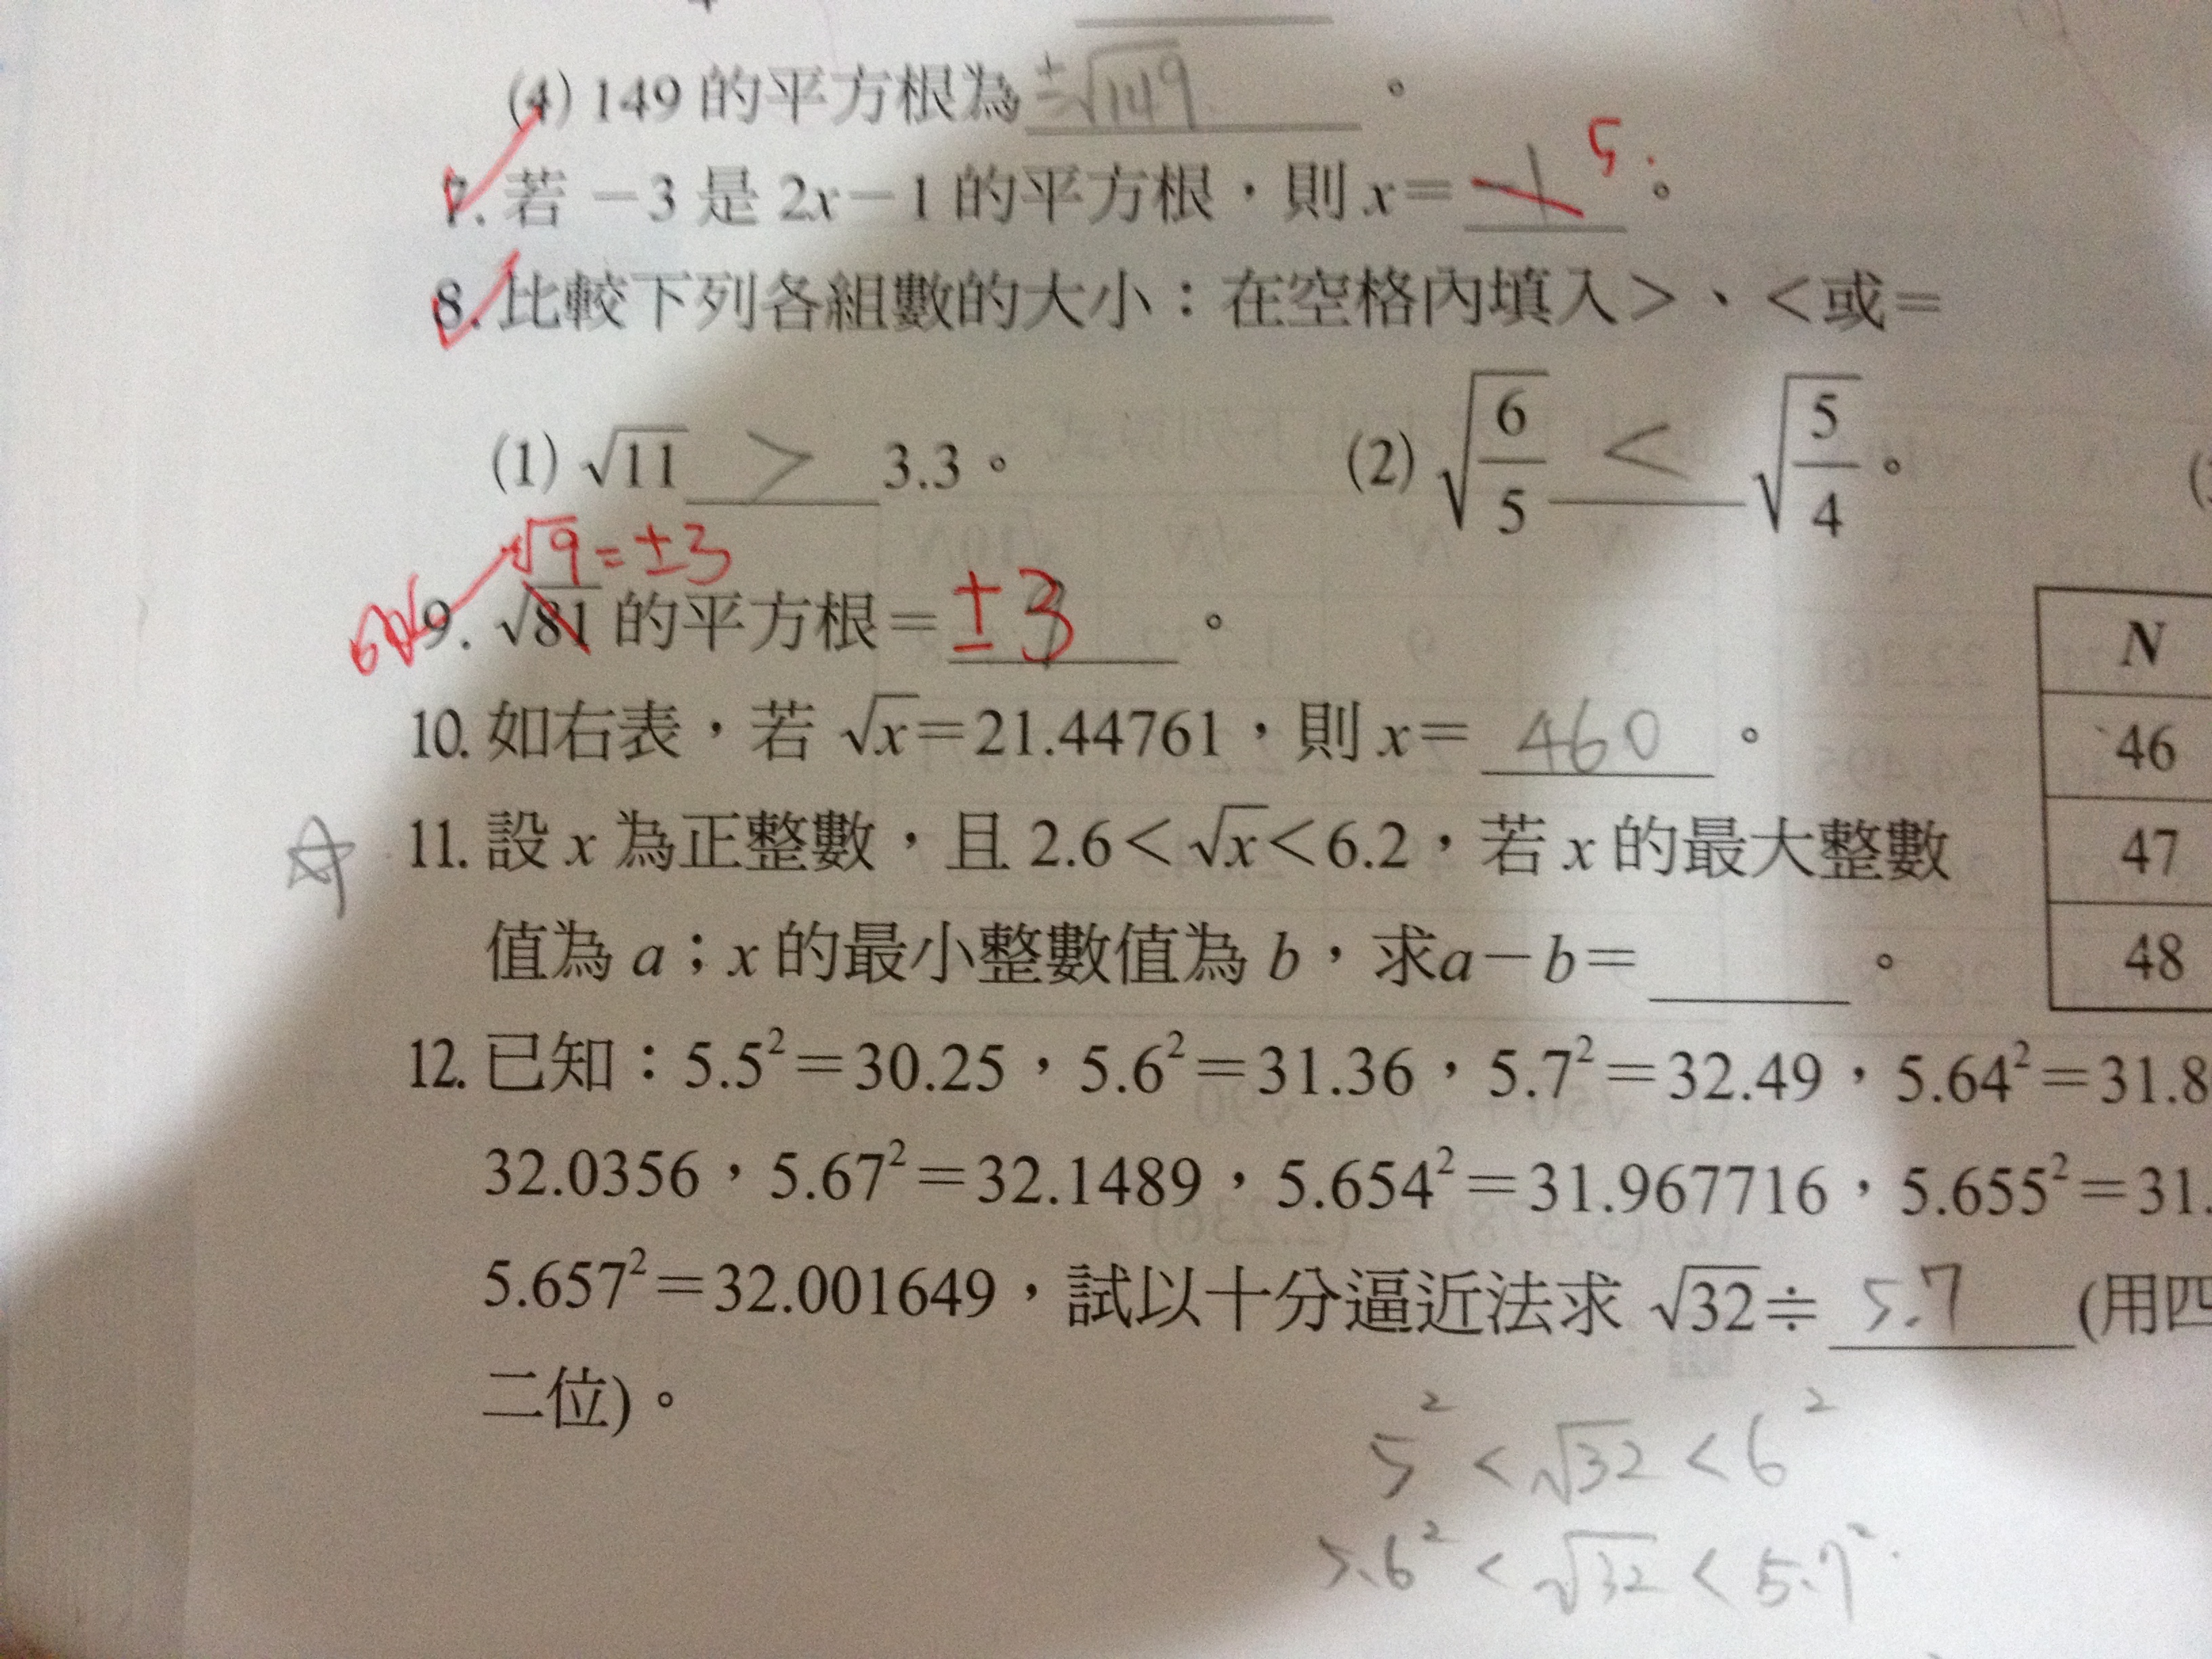 (4) 149 的平方根為 ±√149 。
7. 若 −3 是 2x−1 的平方根，則 x= −1 5 。
8. 比較下列各組數的大小：在空格內填入>、<或=
(1) √11 > 3.3。 (2) √(6/5) < √(5/4)。
√9 = ±3
9. √81 的平方根= ±3 。
10. 如右表，若 √x=21.44761，則 x= 460 。
N
46
47
48
11. 設 x 為正整數，且 2.6<√x<6.2，若 x 的最大整數
值為 a；x 的最小整數值為 b，求a−b= 。
12. 已知：5.5²=30.25，5.6²=31.36，5.7²=32.49，5.64²=31.8
32.0356，5.67²=32.1489，5.654²=31.967716，5.655²=31.
5.657²=32.001649，試以十分逼近法求 √32÷ 5.7 (用四
二位)。
5² < √32 < 6²
5.6² < √32 < 5.7²